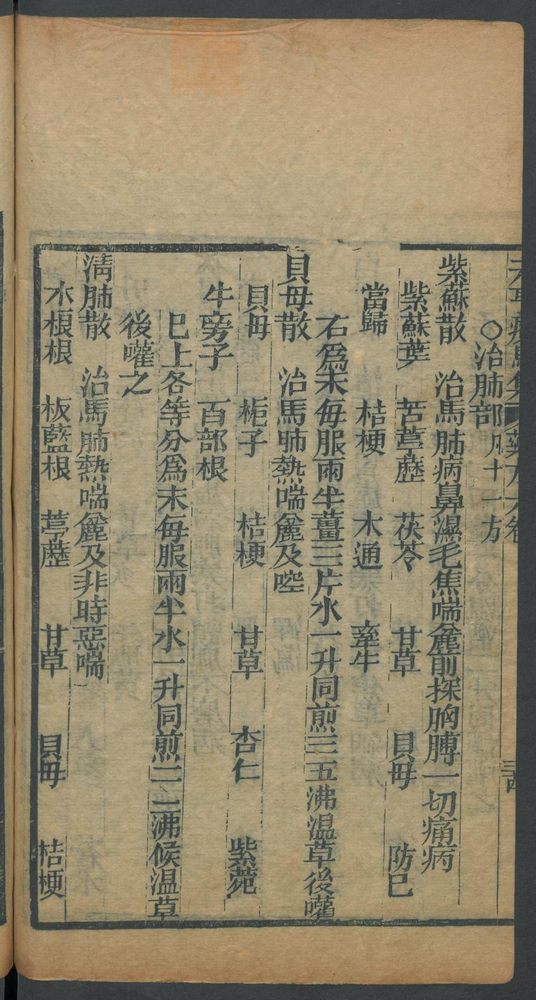 ○治肺部凡十一方
紫蘇散 治馬肺病鼻濕毛焦喘麄前探胸膊一切痛病
紫蘇葉 苦葶藶 茯苓 甘草 貝母 防已
當歸 桔梗 木通 牽牛
右爲末每服兩半薑三片水一升同煎三五沸溫草後嚾
貝母散 治馬肺熱喘麄及啌
貝母 梔子 桔梗 甘草 杏仁 紫菀
牛旁子 百部根
已上各等分爲末每服兩半水一升同煎三二沸候溫草
後嚾之
清肺散 治馬肺熱喘麄及非時惡喘
木榎根 板藍根 葶藶 甘草 貝母 桔梗